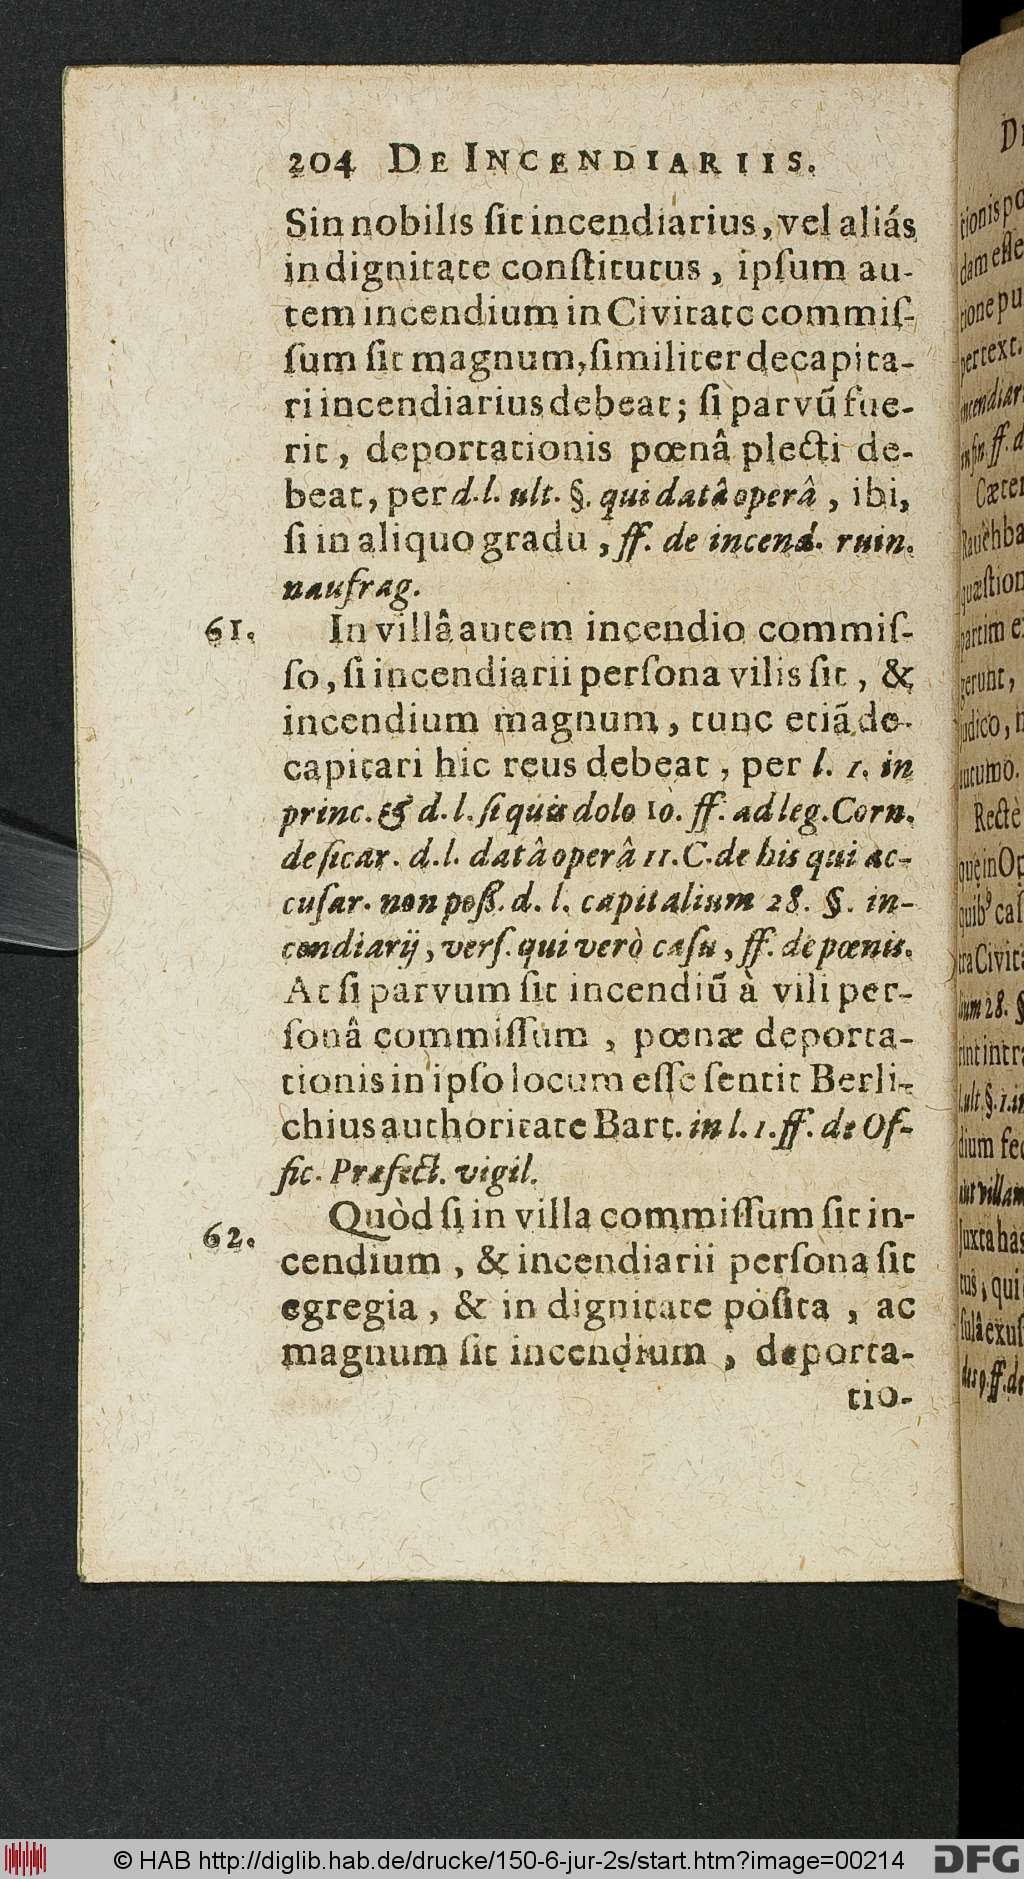 204 DE INCENDIARIIS.
Sin nobilis ſit incendiarius, vel aliás
in dignitate conſtitutus, ipſum au-
tem incendium in Civitate commiſ-
ſum ſit magnum, ſimiliter decapita-
ri incendiarius debeat; ſi parvũ fue-
rit, deportationis pœnâ plecti de-
beat, per d. l. ult. §. qui datâ operâ, ibi,
ſi in aliquo gradu, ff. de incend. ruin.
naufrag.
61. In villâ autem incendio commiſ-
ſo, ſi incendiarii perſona vilis ſit, &
incendium magnum, tunc etiã de-
capitari hic reus debeat, per l. 1. in
princ. & d. l. ſi quis dolo 10. ff. ad leg. Corn.
de ſicar. d. l. datâ operâ 11. C. de his qui ac-
cuſar. non poſſ. d. l. capitalium 28. §. in-
cendiarij, verſ. qui verò caſu, ff. de pœnis.
At ſi parvum ſit incendiũ à vili per-
ſonâ commiſſum, pœnæ deporta-
tionis in ipſo locum eſſe ſentit Berli-
chius authoritate Bart. in l. 1. ff. de Of-
fic. Præfect. vigil.
62. Quòd ſi in villa commiſſum ſit in-
cendium, & incendiarii perſona ſit
egregia, & in dignitate poſita, ac
magnum ſit incendium, deporta-
tio-
© HAB http://diglib.hab.de/drucke/150-6-jur-2s/start.htm?image=00214
DFG